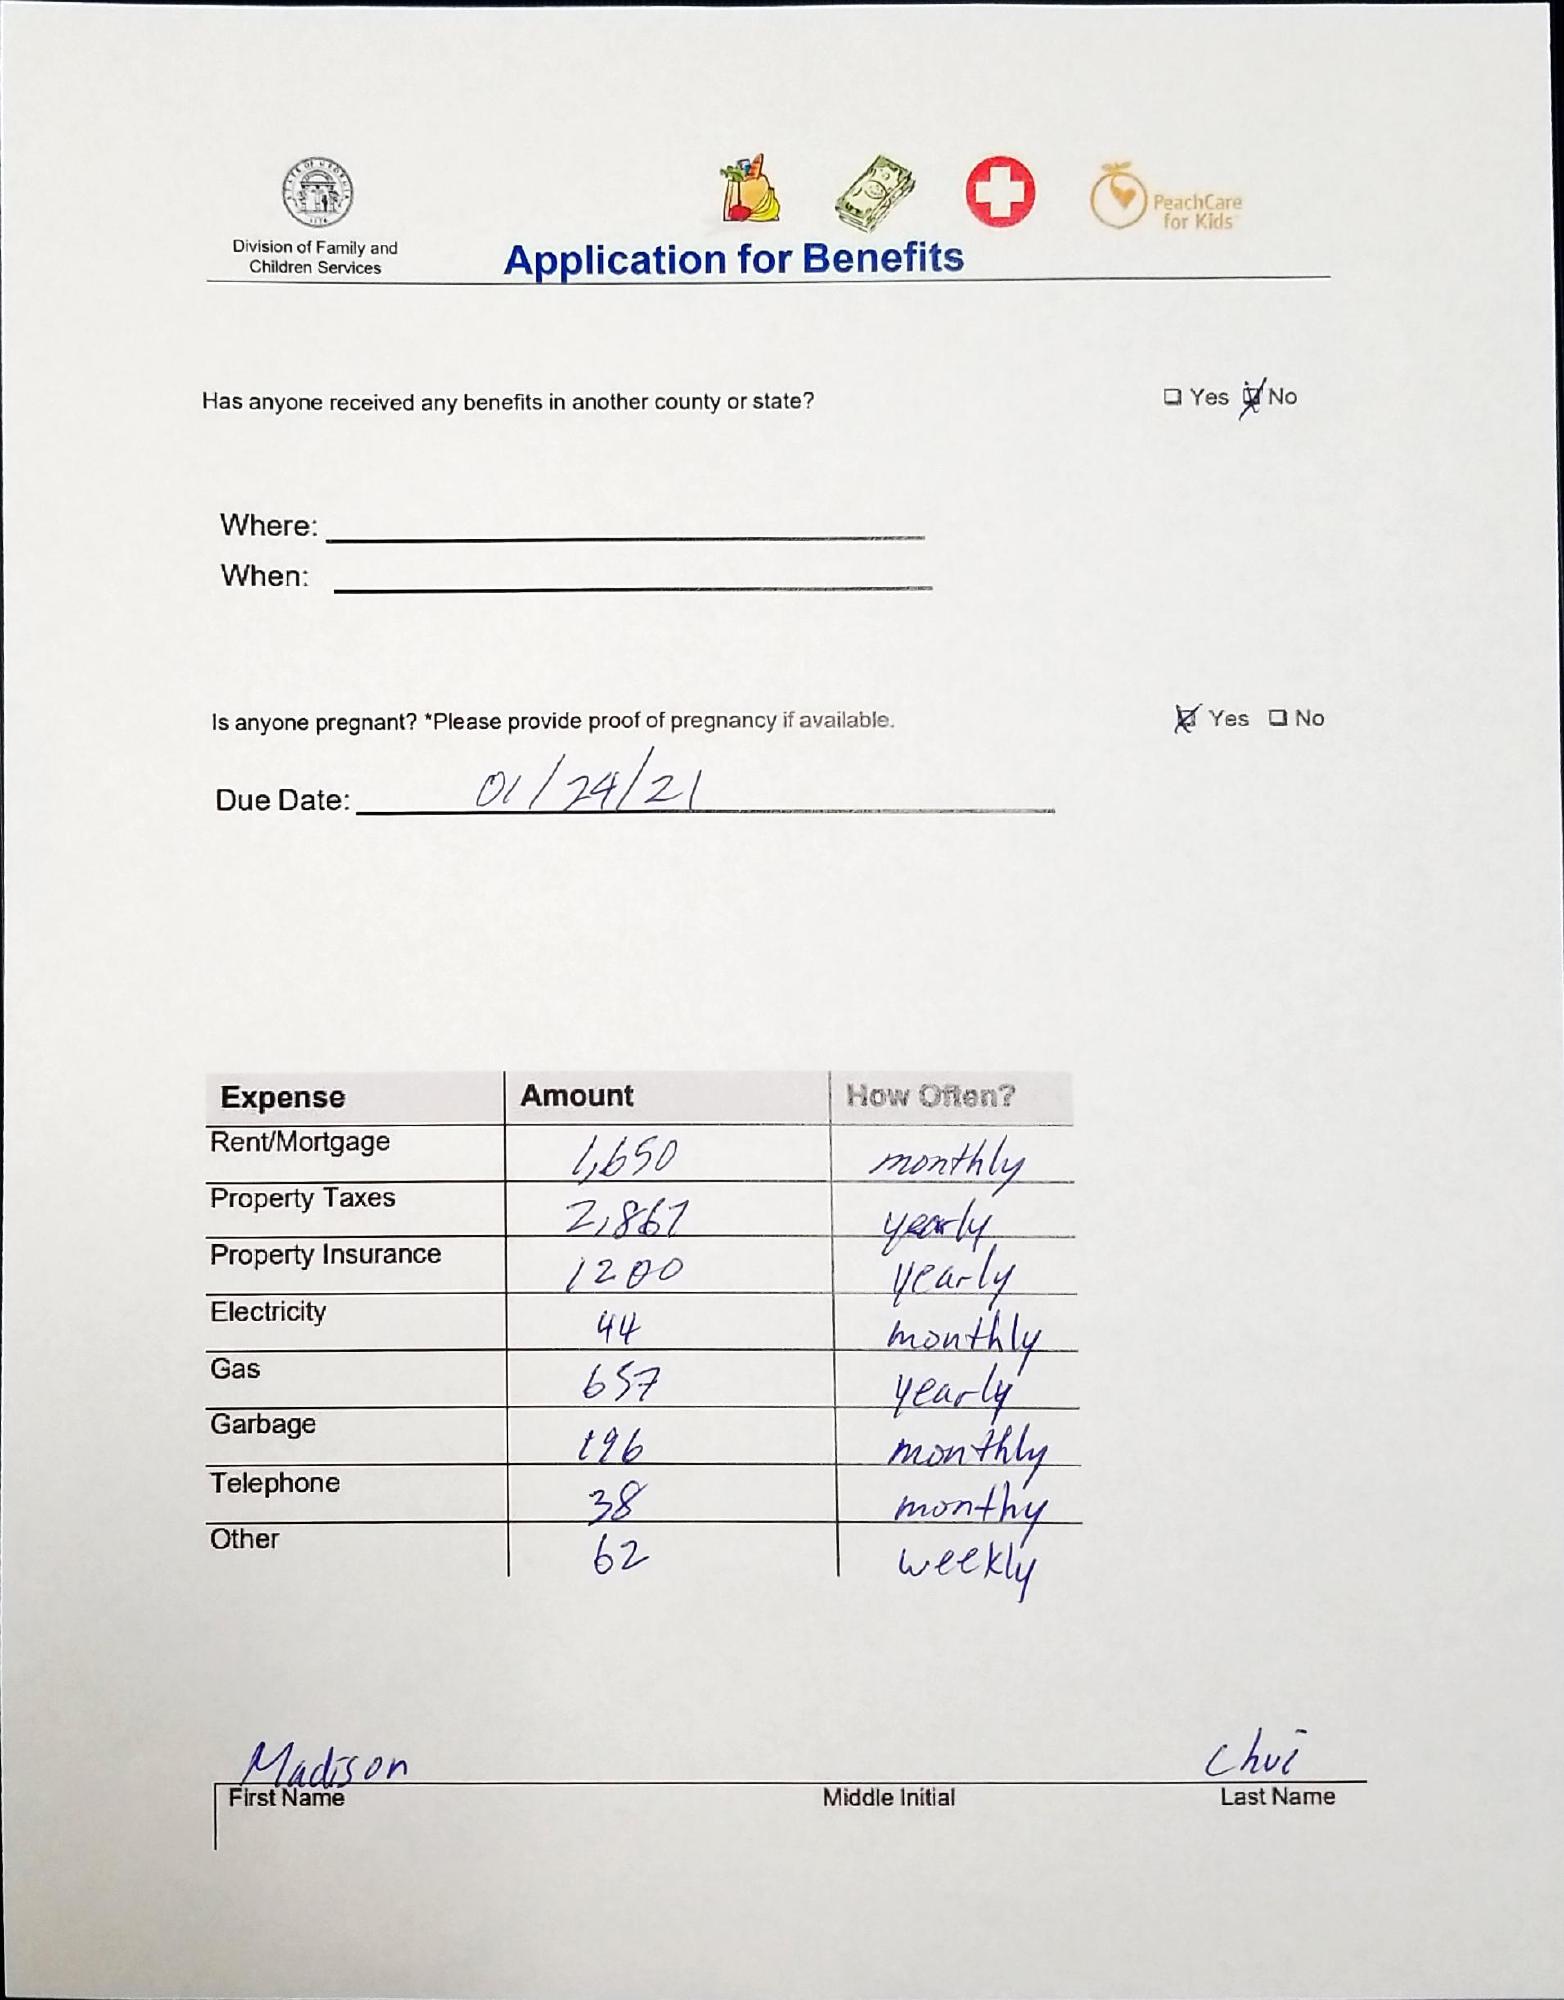 STATE OF GEORGIA
1776
PeachCare
for Kids
Division of Family and
Children Services
Application for Benefits
Has anyone received any benefits in another county or state? Yes No
Where:
When:
Is anyone pregnant? *Please provide proof of pregnancy if available. Yes No
Due Date: 01/24/21
Expense Amount How Often?
Rent/Mortgage 1,650 monthly
Property Taxes 2,867 yearly
Property Insurance 1200 yearly
Electricity 44 monthly
Gas 657 yearly
Garbage 196 monthly
Telephone 38 monthy
Other 62 weekly
Madison Chui
First Name Middle Initial Last Name